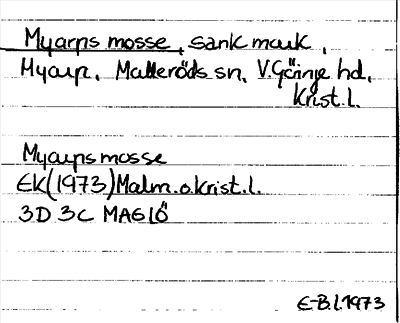 Myarps mosse, sank mark,
Myarp, Matteröds sn, V. Göinge hd,
Krist.l.
Myarps mosse
EK(1973)Malm.o.Krist.l.
3D 3C MAGLÖ
E-B.L1973